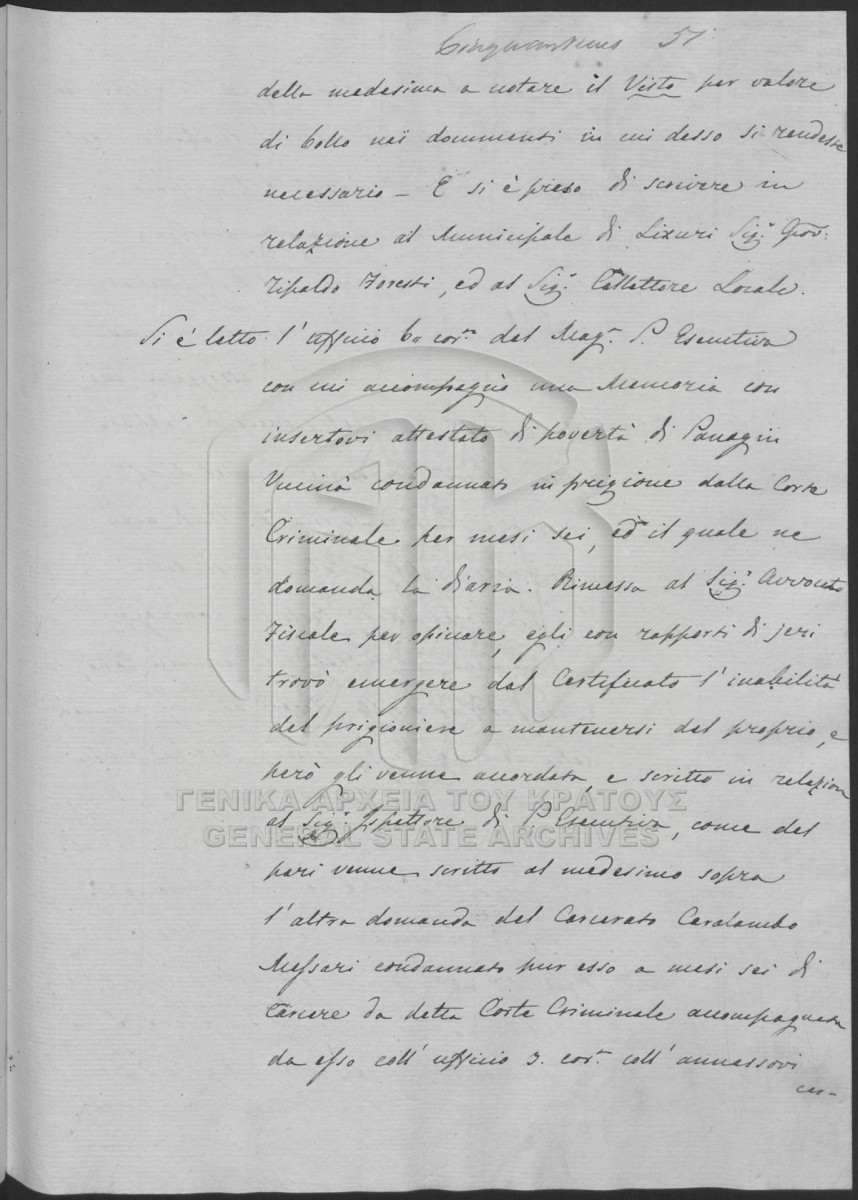 Cinquantuno 51
della medesima a notare il Visto per valore
di bollo nei documenti in cui desso si rendesse
necessario - E si è preso di scrivere in
relazione al Municipale di Lixuri Sig.r Giov:
Tipaldo Foresti, ed al Sig.r Collettore Locale.
Si è letto l'ufficio 6 cor.te del Mag.r P. Esecutiva
con cui accompagnò una Memoria con
insertovi attestato di povertà di Panagin
condannato in prigione dalla Corte
Criminale per mesi sei, ed il quale ne
domanda la diaria. Rimessa al Sig.r Avvocato
Fiscale per opinare, egli con rapporti di jeri
trovò emergere dal Certificato l'inabilità
del prigioniere a mantenersi del proprio, e
però gli venne accordata, e scritto in relazion
ΓΕΝΙΚΑ ΑΡΧΕΙΑ ΤΟΥ ΚΡΑΤΟΥΣ
al Sig.r Ispettore di P. Esecutiva, come del
GENERAL STATE ARCHIVES
pari venne scritto al medesimo sopra
l'altra domanda del Carcerato Caralambo
Messari condannato pur esso a mesi sei di
Carcere da detta Corte Criminale accompagnata
da esso coll'ufficio 3. cor.te coll'annessovi
cer-